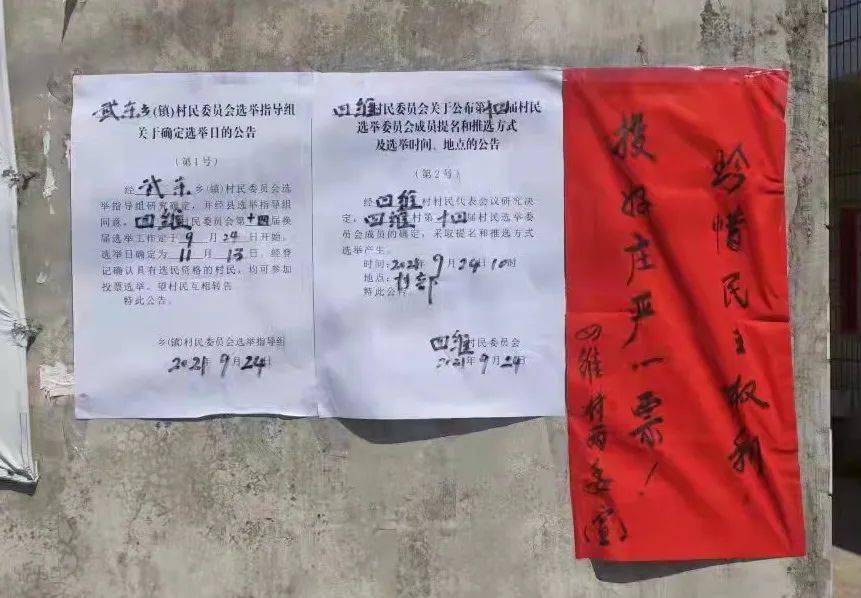 武东乡(镇)村民委员会选举指导组
关于确定选举日的公告
(第1号)
经武东乡(镇)村民委员会选
举指导组研究确定，并经县选举指导组
同意，四维村民委员会第十四届换
届选举工作定于9月24日开始，
选举日确定为11月13日。经登
记确认具有选民资格的村民，均可参加
投票选举。望村民互相转告
特此公告。
乡(镇)村民委员会选举指导组
2021年9月24日
四维村民委员会关于公布第十四届村民
选举委员会成员提名和推选方式
及选举时间、地点的公告
(第2号)
经四维村村民代表会议研究决
定，四维村第十四届村民选举委
员会成员的确定，采取提名和推选方式
选举产生。
时间:2021年9月24日10时
地点:村部
特此公告
四维村民委员会
2021年9月24日
珍惜民主权利
投好庄严一票！
四维村两委(宣)